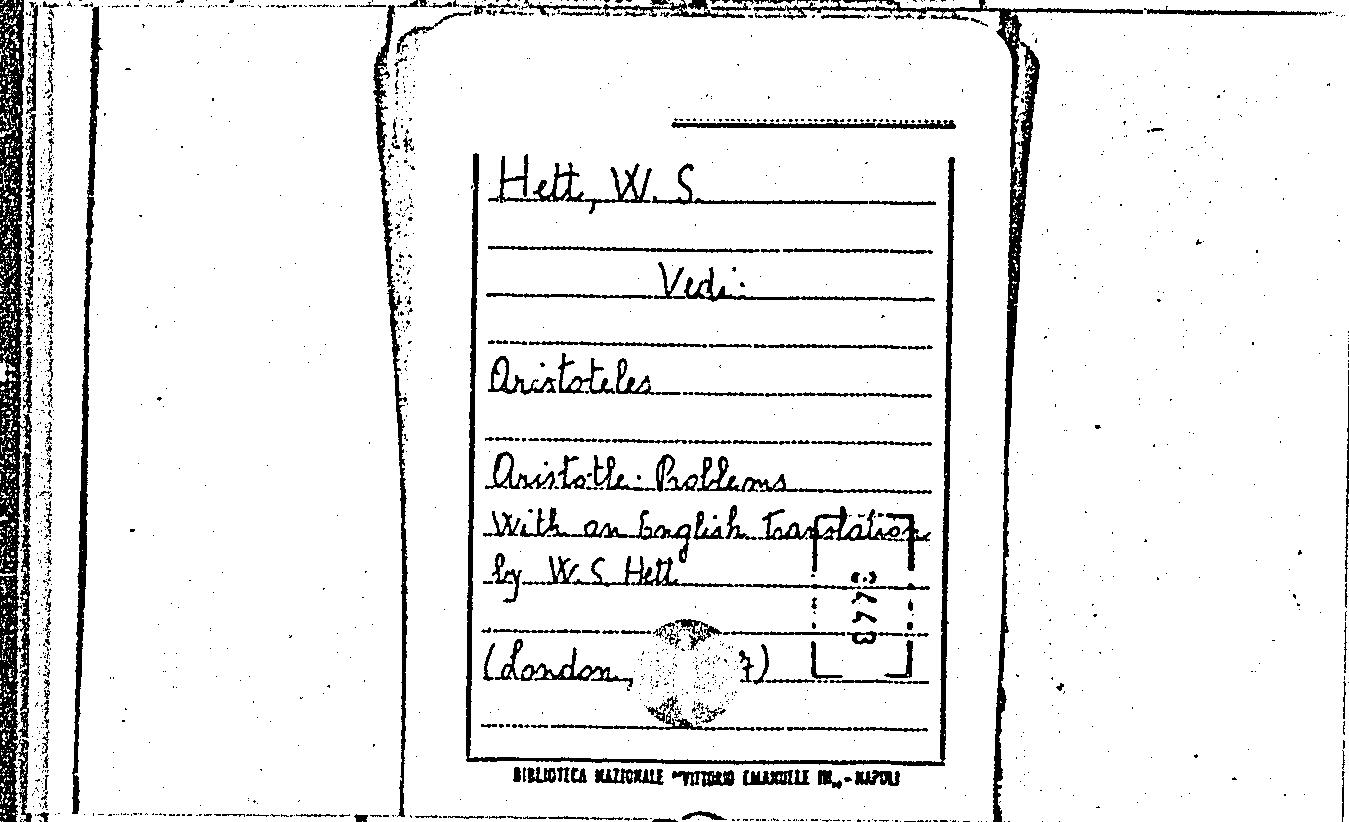 Hett, W. S.
Vedi:
Aristoteles
Aristotle. Problems
With an English translation
by W. S. Hett
(London, 7)
BIBLIOTECA NAZIONALE "VITTORIO EMANUELE III„ - NAPOLI